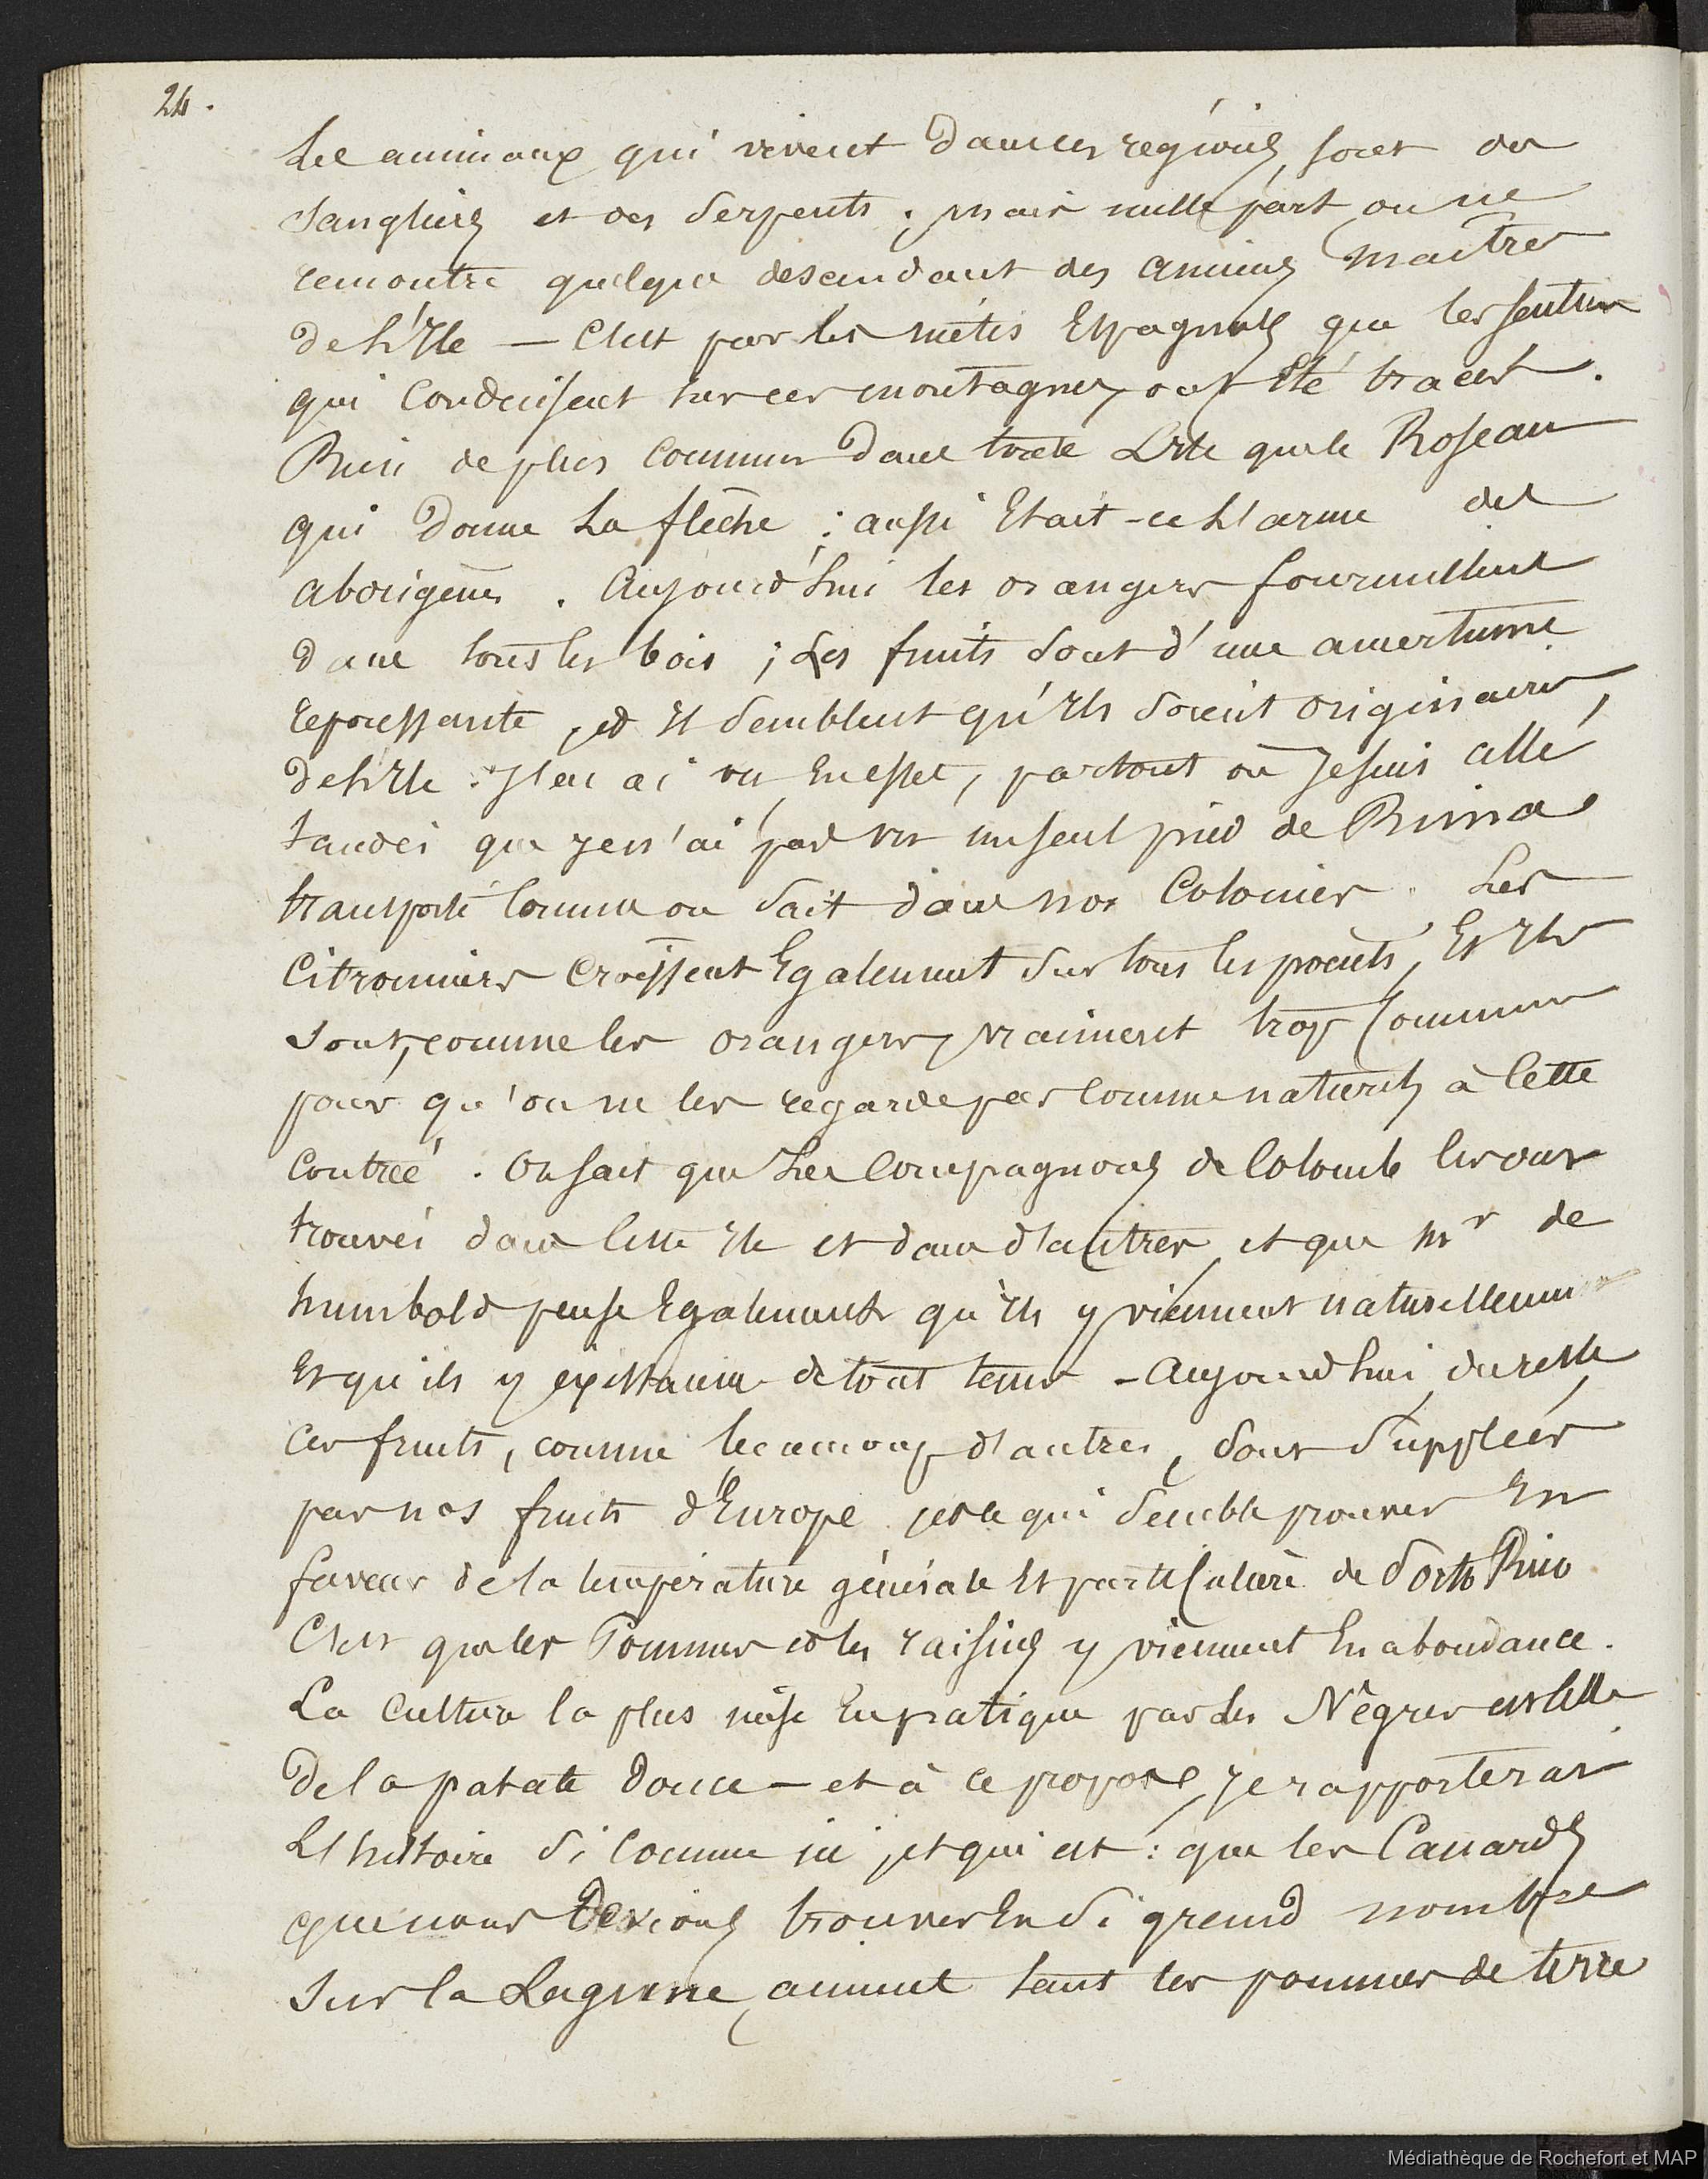 24.
Les animaux qui vivent dans ces régions, sont des
Sangliers et des Serpents ; mais nulle part on ne
rencontre quelque descendant des anciens maîtres
de L'Ile — C'est par les métis Espagnols que les sentiers
qui Conduisent sur ces montagnes, ont été tracés.
Rien de plus Commun dans toute L'Ile que le Roseau
qui donne La flèche ; aussi Etait-ce L'arme des
aborigènes. Aujourd'hui les orangers fourmillent
dans tous les bois ; Les fruits sont d'une amertume
repoussante, et Il semblent qu'Ils soient originaires,
de L'Ile. J'en ai vu, En effet, partout où Je suis allé
tandis que Je n'ai pas vu un seul pied de Rima
transporté Comme on sait dans nos Colonies. Les
Citronniers Croissent Egalement sur tous les points, Et Ils
sont, comme les orangers, vraiment trop Communs
pour qu'on ne les regarde pas Comme naturels à Cette
Contrée. On sait que Les Compagnons de Colomb les ont
trouvés dans Cette Ile et dans d'autres, et que Mr de
humbold pense Egalement qu'Ils y viennent naturellement
Et qu'ils y existaient de tout tems - Aujourd'hui, du reste,
Ces fruits, comme beaucoup d'autres, sont Suppléés
par nos fruits d'Europe, et ce qui semble prouver En
faveur de la température générale Et particulière de Porto Rico
C'est que les Pommes et les raisins y viennent En abondance.
La Culture la plus mise En pratique par Les Nègres est celle
de la patate douce — et à ce propos, Je rapporterai
L'histoire si Connue ici, et qui est : que les Canards
que nous devions trouver En si grand nombre
Sur la Lagune, aiment tant les pommes de terre
Médiathèque de Rochefort et MAP